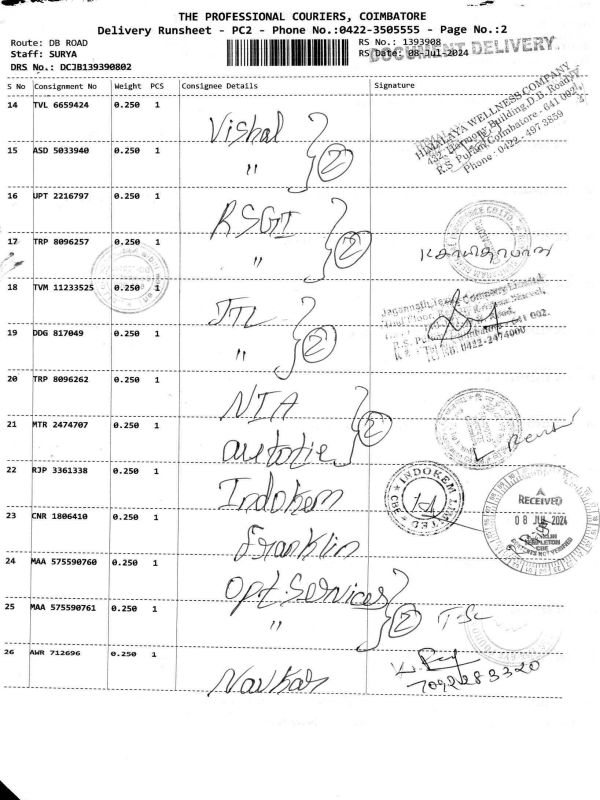 THE PROFESSIONAL COURIERS, COIMBATORE
Delivery Runsheet - PC2 - Phone No.:0422-3505555 - Page No.:2
Route: DB ROAD
Staff: SURYA
DRS No.: DCJB139390802
RS No.: 1393908
RS Date: 08-Jul-2024
DOCUMENT DELIVERY
S No Consignment No Weight PCS Consignee Details Signature
14 TVL 6659424 0.250 1 Vishal
HIMALAYA WELLNESS COMPANY
Building, D.B. Road,
R.S. Puram, Coimbatore - 641 002.
Phone - 0422 - 497 3859
15 ASD 5033940 0.250 1 " 2
16 UPT 2216797 0.250 1 RSGI
17 TRP 8096257 0.250 1 " 2
18 TVM 11233525 0.250 1 JTL
R.S. 641 002.
0422-2474000
19 DDG 817049 0.250 1 " 2
20 TRP 8096262 0.250 1 NIA
21 MTR 2474707 0.250 1 2
22 RJP 3361338 0.250 1 Indokem
INDOKEM LIMITED
CBE
RECEIVED
08 JUL 2024
TEMPLETON
CBE
CONTENTS NOT VERIFIED
23 CNR 1806410 0.250 1 Franklin
24 MAA 575590760 0.250 1 Opt. Services
25 MAA 575590761 0.250 1 " 2
26 AWR 712696 0.250 1 Navkar
7092283320